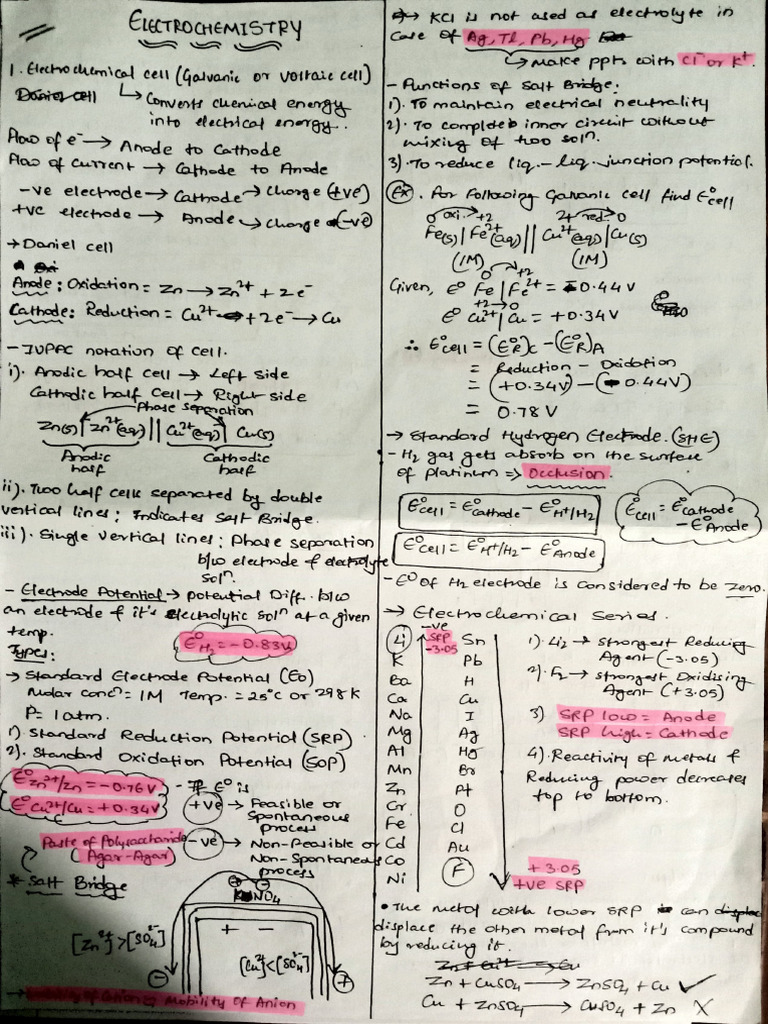 ELECTROCHEMISTRY
1. Electrochemical cell (Galvanic or Voltaic cell)
Daniel cell ↳ Converts chemical energy
into electrical energy.
Flow of e⁻ → Anode to Cathode
Flow of current → Cathode to Anode
-ve electrode → Cathode → Charge (+ve)
+ve electrode → Anode → Charge (-ve)
→ Daniel cell
Anode: Oxidation = Zn → Zn²⁺ + 2e⁻
Cathode: Reduction = Cu²⁺ + 2e⁻ → Cu
- IUPAC notation of cell.
i). Anodic half cell → Left side
Cathodic half cell → Right side
Phase separation
Zn(s) | Zn²⁺(aq) || Cu²⁺(aq) | Cu(s)
Anodic half Cathodic half
ii). Two half cells separated by double
vertical lines; Indicates Salt Bridge.
iii). Single vertical lines; Phase separation
b/w electrode & electrolyte
solⁿ.
- Electrode Potential → potential Diff. b/w
an electrode & it's electrolytic solⁿ at a given
temp.
E°H₂ = -0.83V
Types:
→ Standard Electrode Potential (E₀)
Molar concⁿ = 1M Temp. = 25°C or 298K
P = 1 atm.
1). Standard Reduction Potential (SRP)
2). Standard Oxidation Potential (SOP)
E°Zn²⁺/Zn = -0.76V
E°Cu²⁺/Cu = +0.34V
- If E° is
+ve → Feasible or
Spontaneous
process
-ve → Non-Feasible or
Non-Spontaneous
process
Paste of Polysaccharide
(Agar-Agar)
* Salt Bridge
+ -
KNO₄
+ -
[Zn²⁺] > [SO₄²⁻]
[Cu²⁺] < [SO₄²⁻]
- +
→ Mobility of Cation = Mobility of Anion
→ KCl is not used as electrolyte in
case of Ag, Tl, Pb, Hg
→ make ppts with Cl⁻ or K⁺.
- Functions of Salt Bridge:
1). To maintain electrical neutrality
2). To complete inner circuit without
mixing of two solⁿ.
3). To reduce liq. - liq. junction potential.
Ex. For following Galvanic cell find E°cell
0 oxi. +2 2+ red. 0
Fe(s) | Fe²⁺(aq) || Cu²⁺(aq) | Cu(s)
(1M) (1M)
0 +2
Given, E° Fe | Fe²⁺ = -0.44V
+2 → 0
E° Cu²⁺ | Cu = +0.34V
∴ E°cell = (E°R)C - (E°R)A
= Reduction - Oxidation
= (+0.34V) - (-0.44V)
= 0.78V
→ Standard Hydrogen Electrode. (SHE)
- H₂ gas gets absorb on the surface
of platinum => Occlusion.
E°cell = E°cathode - E°H⁺/H₂
E°cell = E°cathode - E°Anode
E°cell = E°H⁺/H₂ - E°Anode
- E° of H₂ electrode is considered to be zero.
→ Electrochemical Series.
-ve
SRP
-3.05
Li Sn
K Pb
Ba H
Ca Cu
Na I
Mg Ag
Al Hg
Mn Br
Zn Pt
Cr O
Fe Cl
Cd Au
Co F
Ni
+3.05
+ve SRP
1). Li₂ → strongest Reducing
Agent (-3.05)
2). F₂ → strongest Oxidising
Agent (+3.05)
3) SRP low = Anode
SRP high = Cathode
4). Reactivity of metals &
Reducing power decreases
top to bottom.
• The metal with lower SRP can
displace the other metal from it's compound
by reducing it.
Zn + CuSO₄ → ZnSO₄ + Cu ✓
Cu + ZnSO₄ → CuSO₄ + Zn X